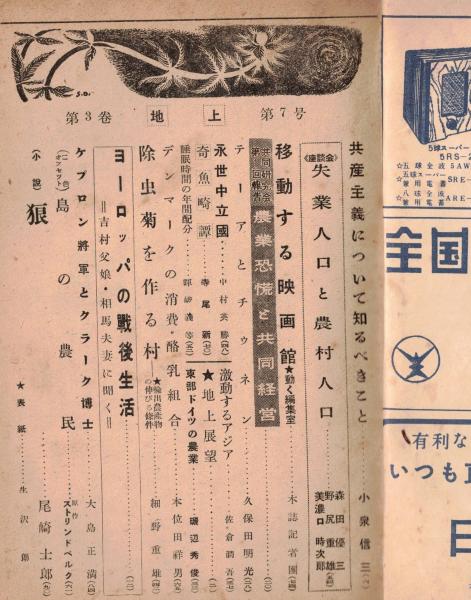 第3卷 地上 第7号
共産主義について知るべきこと 小泉信三
《座談会》 失業人口と農村人口 森田優三 野尻重雄 美濃口時次郎
移動する映画館 ★動く編集室 本誌記者團
共同研究会 第一回報告 農業恐慌と共同経営
テーアとチュウネン 久保田明光
永世中立國 中村英勝
激動するアジア 佐倉潤吾
奇魚畸譚 寺尾新
★地上展望
睡眠時間の年間配分
東部ドイツの農業 磯辺秀俊
デンマークの消費・酪乳組合 本位田祥男
除虫菊を作る村 ★輸出農産物の伸びる條件 細野重雄
ヨーロッパの戦後生活
＝吉村父娘・相馬夫妻に聞く＝
ケプロン將軍とクラーク博士 大島正満
(二色オフセット) 島の農民 原作 ストリンドベルク
(小説) 狼 尾崎士郎
★表紙 生沢朗
S.O.
5球スーパー
5RS-2
☆五球全波 5AW
☆五球スーパー兼用電蓄 SRE-
☆八球全波兼用電蓄 ARE-
全国
有利な
いつも
日